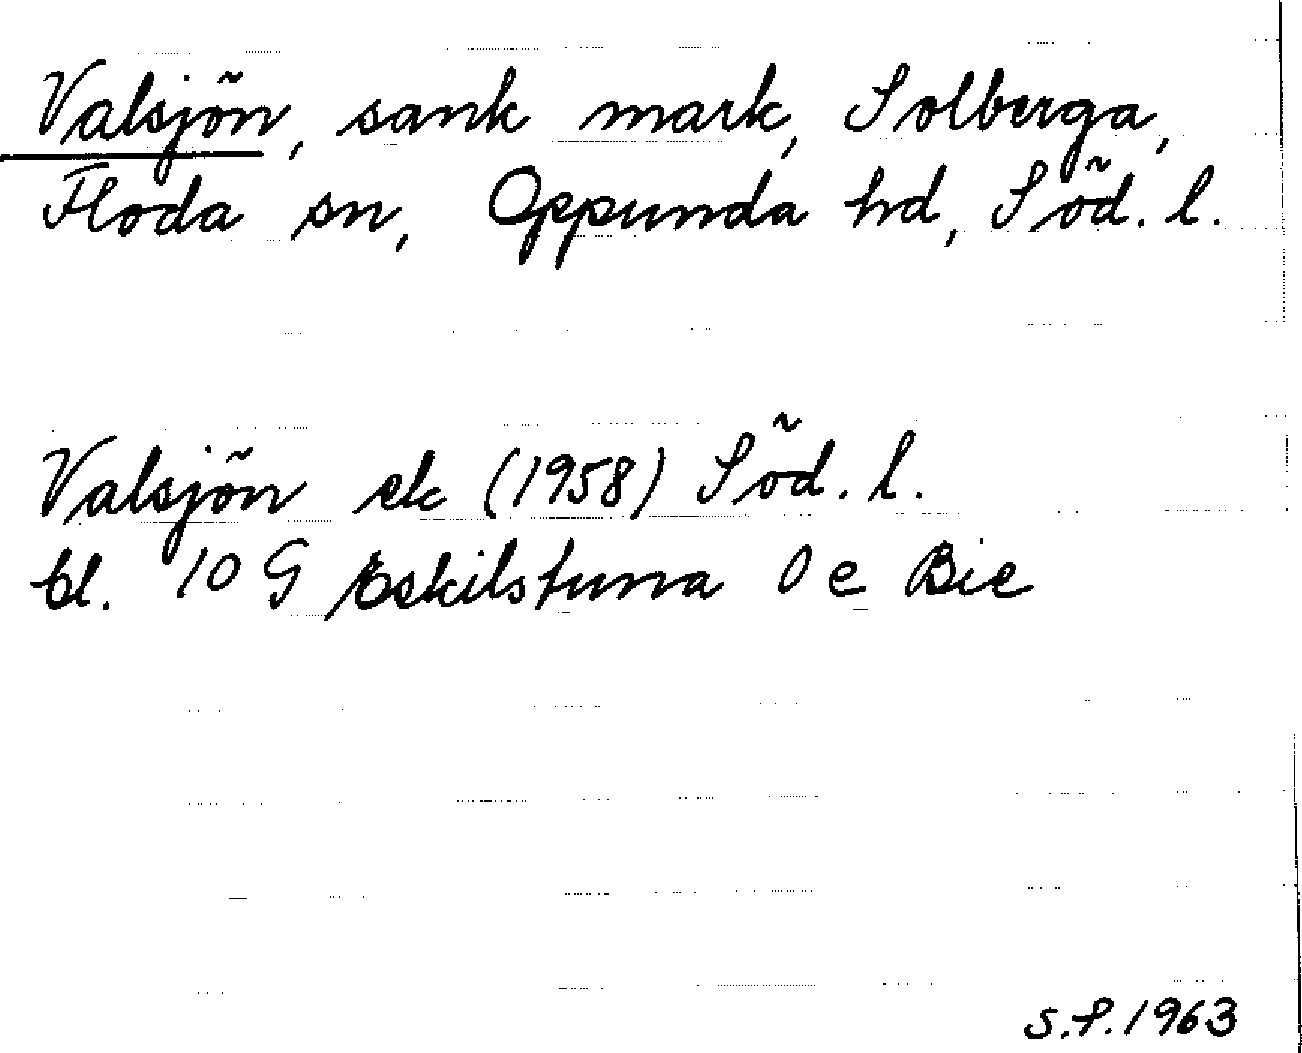 Valsjön, sank mark, Solberga,
Floda sn, Oppunda hd, Söd. l.
Valsjön ek (1958) Söd. l.
bl. 10 G Eskilstuna 0 e Bie
S.P. 1963